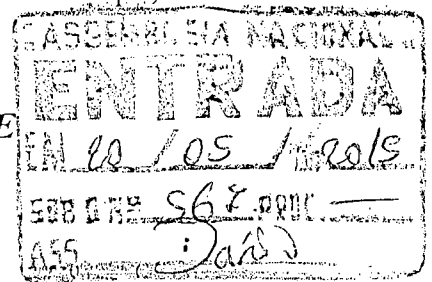 ASSEMBLEIA NACIONAL
ENTRADA
E
EM 20 / 05 / 2015
SOB O Nº 567
ASS